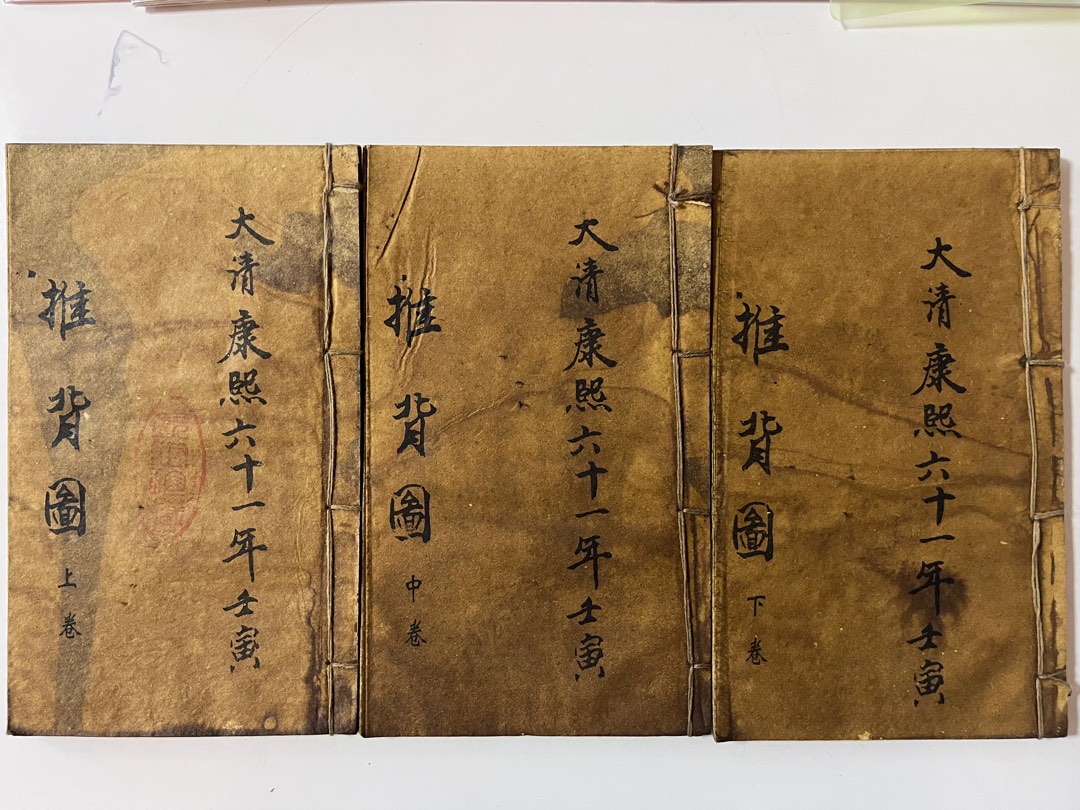 大清康熙六十一年壬寅
推背圖
上卷
大清康熙六十一年壬寅
推背圖
中卷
大清康熙六十一年壬寅
推背圖
下卷